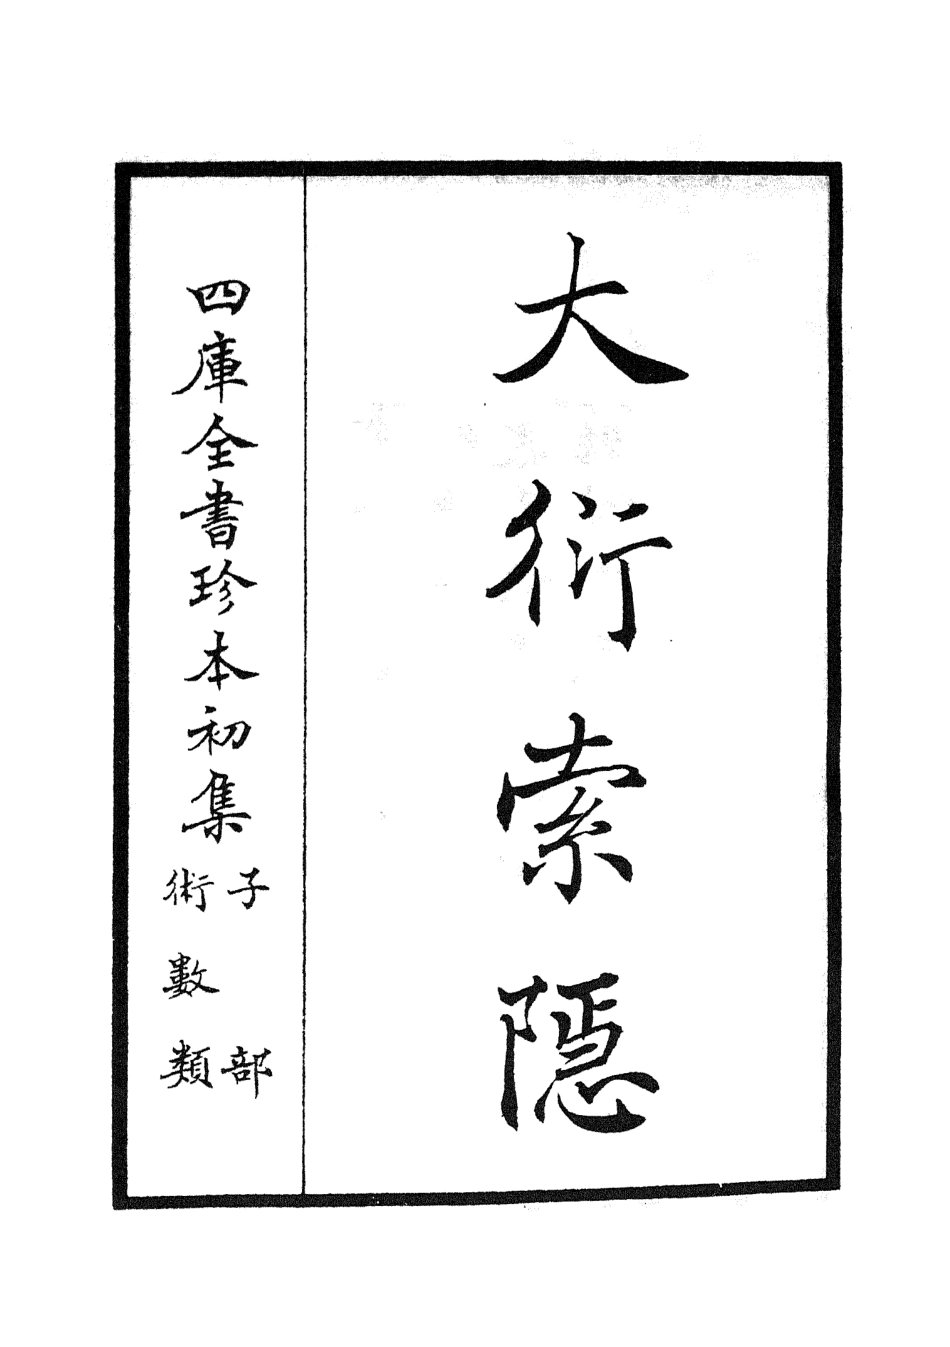 大衍索隱
四庫全書珍本初集
子部
術數類